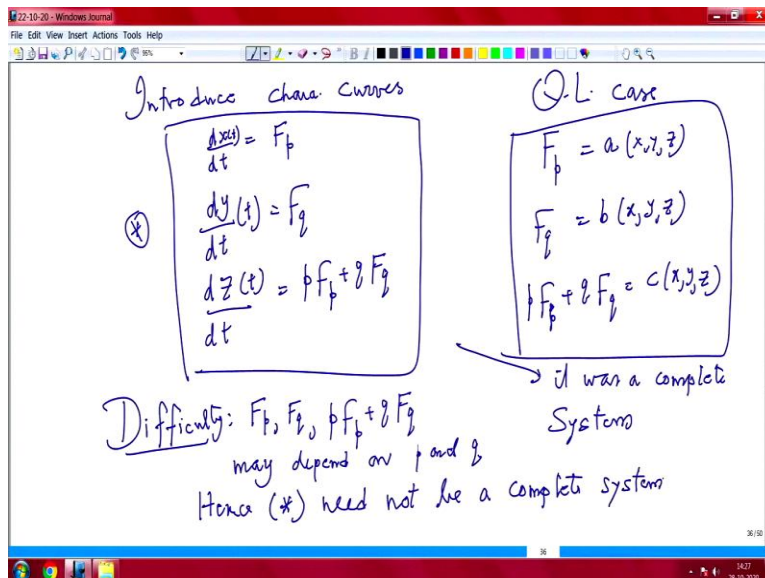 22-10-20 - Windows Journal
File Edit View Insert Actions Tools Help
95%
Introduce chara. curves
dx(t)/dt = F_p
dy/dt (t) = F_q
(*)
dz(t)/dt = pF_p + qF_q
Q.L. case
F_p = a(x,y,z)
F_q = b(x,y,z)
pF_p + qF_q = c(x,y,z)
it was a complete
System
Difficulty: F_p, F_q, pF_p + qF_q
may depend on p and q
Hence (*) need not be a complete system
36/50
36
14:27
26-10-2020